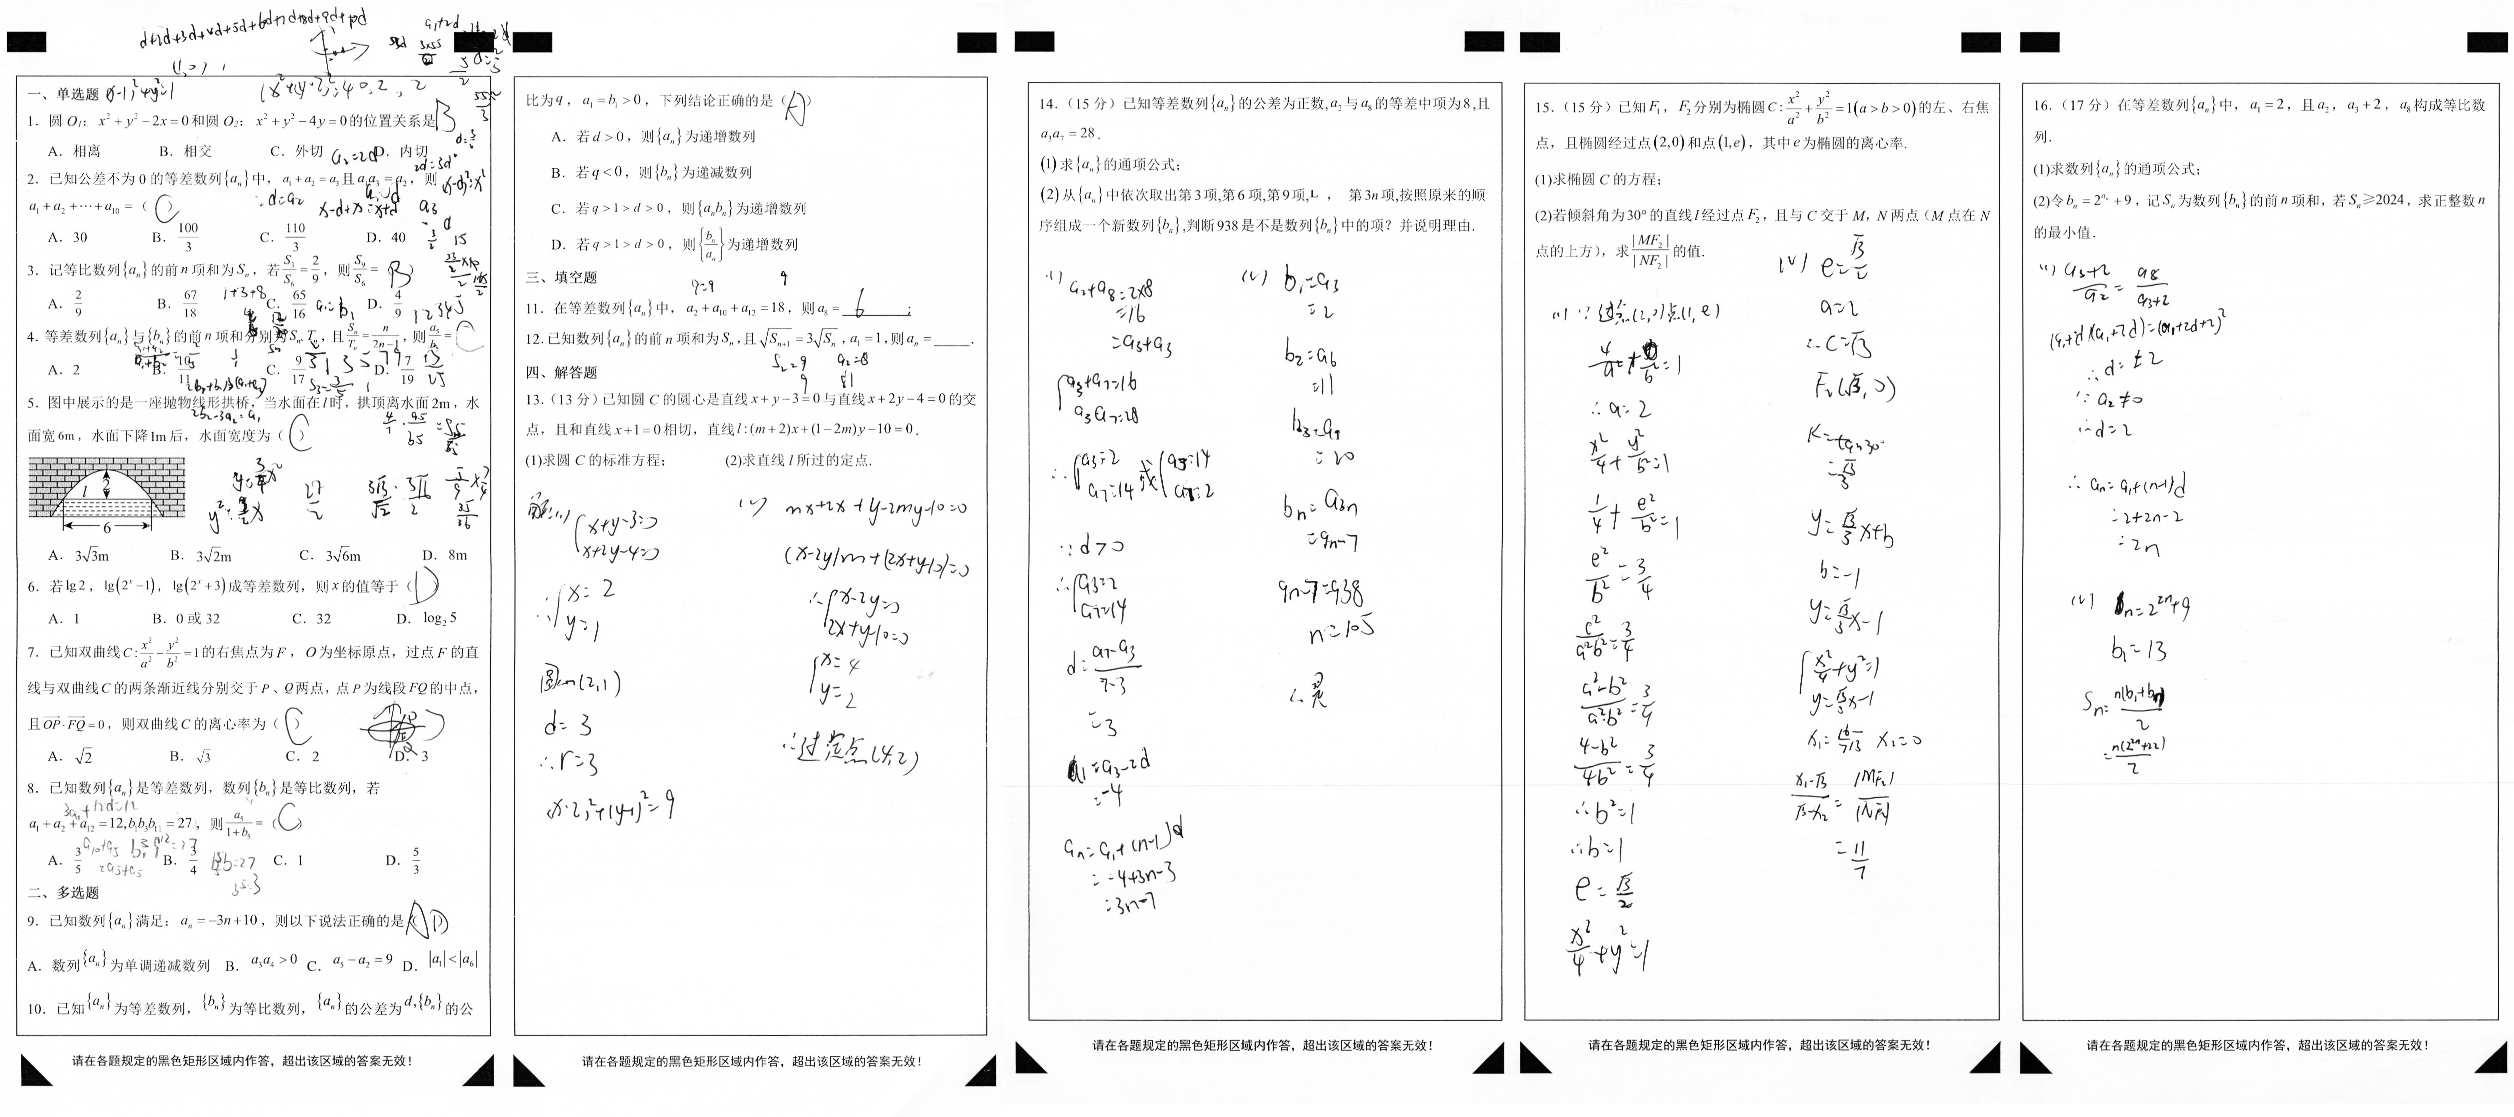 一、单选题
1．圆O₁：x²+y²-2x=0和圆O₂：x²+y²-4y=0的位置关系是 B
A．相离 B．相交 C．外切 D．内切
2．已知公差不为0的等差数列{aₙ}中，a₁+a₂=a₃且a₁a₃=a₂，则
a₁+a₂+⋯+a₁₀=（C）
A．30 B．100/3 C．110/3 D．40
3．记等比数列{aₙ}的前n项和为Sₙ，若S₃/S₆=2/9，则S₉/S₆=（B）
A．2/9 B．67/18 C．65/16 D．4/9
4．等差数列{aₙ}与{bₙ}的前n项和分别为Sₙ,Tₙ，且Sₙ/Tₙ=n/(2n-1)，则a₅/b₅=（C
A．2 B．10/11 C．9/17 D．7/19
5．图中展示的是一座抛物线形拱桥，当水面在l时，拱顶离水面2m，水
面宽6m，水面下降1m后，水面宽度为（C）
2
l
6
A．3√3m B．3√2m C．3√6m D．8m
6．若lg2，lg(2ˣ-1)，lg(2ˣ+3)成等差数列，则x的值等于（D）
A．1 B．0或32 C．32 D．log₂5
7．已知双曲线C:x²/a²-y²/b²=1的右焦点为F，O为坐标原点，过点F的直
线与双曲线C的两条渐近线分别交于P、Q两点，点P为线段FQ的中点，
且OP·FQ=0，则双曲线C的离心率为（C）
A．√2 B．√3 C．2 D．3
8．已知数列{aₙ}是等差数列，数列{bₙ}是等比数列，若
a₁+a₂+a₁₂=12,b₁b₃b₁₁=27，则a₅/(1+b₅)=（C）
A．3/5 B．3/4 C．1 D．5/3
二、多选题
9．已知数列{aₙ}满足：aₙ=-3n+10，则以下说法正确的是（AD）
A．数列{aₙ}为单调递减数列 B．a₃a₄>0 C．a₅-a₂=9 D．|a₁|<|a₆|
10．已知{aₙ}为等差数列，{bₙ}为等比数列，{aₙ}的公差为d,{bₙ}的公
请在各题规定的黑色矩形区域内作答，超出该区域的答案无效！
比为q，a₁=b₁>0，下列结论正确的是（A）
A．若d>0，则{aₙ}为递增数列
B．若q<0，则{bₙ}为递减数列
C．若q>1>d>0，则{aₙbₙ}为递增数列
D．若q>1>d>0，则{bₙ/aₙ}为递增数列
三、填空题
11．在等差数列{aₙ}中，a₂+a₁₀+a₁₂=18，则a₈=6；
12．已知数列{aₙ}的前n项和为Sₙ,且√Sₙ₊₁=3√Sₙ，a₁=1,则aₙ=_____．
S₂=9 a₂=8
9 81
四、解答题
13．（13分）已知圆C的圆心是直线x+y-3=0与直线x+2y-4=0的交
点，且和直线x+1=0相切，直线l:(m+2)x+(1-2m)y-10=0．
(1)求圆C的标准方程； (2)求直线l所过的定点．
解：(1) {x+y-3=0
x+2y-4=0
∴{x=2
y=1
圆心(2,1)
d=3
∴r=3
(x-2)²+(y-1)²=9
(2) mx+2x+y-2my-10=0
(x-2y)m+(2x+y-10)=0
∴{x-2y=0
2x+y-10=0
{x=4
y=2
∴过定点(4,2)
请在各题规定的黑色矩形区域内作答，超出该区域的答案无效！
14．（15分）已知等差数列{aₙ}的公差为正数,a₂与a₈的等差中项为8,且
a₃a₇=28．
(1)求{aₙ}的通项公式；
(2)从{aₙ}中依次取出第3项,第6项,第9项,L ， 第3n项,按照原来的顺
序组成一个新数列{bₙ},判断938是不是数列{bₙ}中的项？并说明理由．
(1) a₂+a₈=2×8
=16
=a₃+a₃
{a₃+a₇=16
a₃a₇=28
∴{a₃=2
a₇=14 或{a₃=14
a₇=2
∵d>0
∴{a₃=2
a₇=14
d=(a₇-a₃)/(7-3)
=3
a₁=a₃-2d
=-4
aₙ=a₁+(n-1)d
=-4+3n-3
=3n-7
(2) b₁=a₃
=2
b₂=a₆
=11
b₃=a₉
=20
bₙ=a₃ₙ
=9n-7
9n-7=938
n=105
∴是
请在各题规定的黑色矩形区域内作答，超出该区域的答案无效！
15．（15分）已知F₁，F₂分别为椭圆C:x²/a²+y²/b²=1(a>b>0)的左、右焦
点，且椭圆经过点(2,0)和点(1,e)，其中e为椭圆的离心率．
(1)求椭圆C的方程；
(2)若倾斜角为30°的直线l经过点F₂，且与C交于M，N两点（M点在N
点的上方），求|MF₂|/|NF₂|的值．
(1) ∵过点(2,0)点(1,e)
4/a²+0/b²=1
∴a=2
x²/4+y²/b²=1
1/4+e²/b²=1
e²/b²=3/4
c²/a²b²=3/4
(a²-b²)/a²b²=3/4
(4-b²)/4b²=3/4
∴b²=1
∴b=1
e=√3/2
x²/4+y²=1
(2) e=√3/2
a=2
∴c=√3
F₂(√3,0)
K=tan30°
=√3/3
y=√3/3x+b
b=-1
y=√3/3x-1
{x²/4+y²=1
y=√3/3x-1
x₁=16/7√3 x₂=0
(x₁-√3)/(√3-x₂)=|MF₂|/|NF₂|
=11/7
请在各题规定的黑色矩形区域内作答，超出该区域的答案无效！
16．（17分）在等差数列{aₙ}中，a₁=2，且a₂，a₃+2，a₈构成等比数
列．
(1)求数列{aₙ}的通项公式；
(2)令bₙ=2^aₙ+9，记Sₙ为数列{bₙ}的前n项和，若Sₙ≥2024，求正整数n
的最小值．
(1) (a₃+2)/a₂=a₈/(a₃+2)
(a₁+d)(a₁+7d)=(a₁+2d+2)²
∴d=±2
∵a₂≠0
∴d=2
∴aₙ=a₁+(n-1)d
=2+2n-2
=2n
(2) bₙ=2²ⁿ+9
b₁=13
Sₙ=n(b₁+bₙ)/2
=n(2²ⁿ+22)/2
请在各题规定的黑色矩形区域内作答，超出该区域的答案无效！